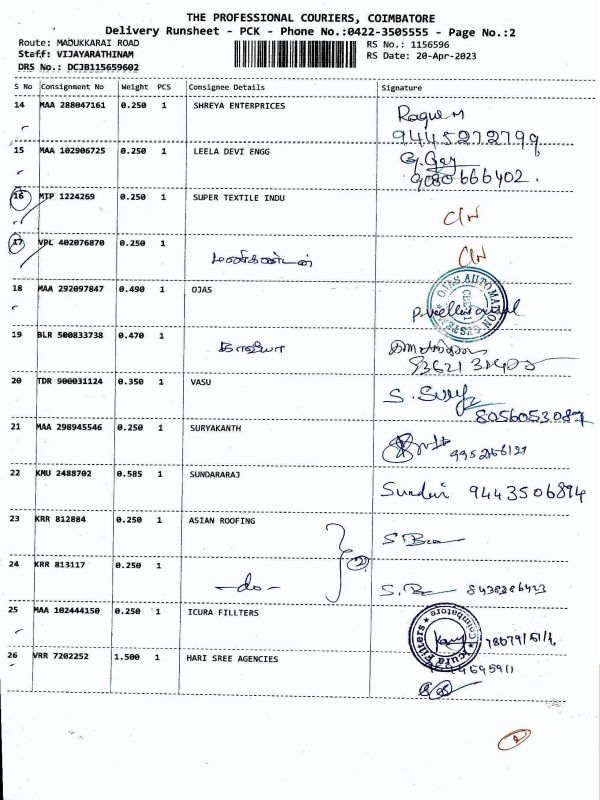 THE PROFESSIONAL COURIERS, COIMBATORE
Delivery Runsheet - PCK - Phone No.:0422-3505555 - Page No.:2
Route: MADUKKARAI ROAD RS No.: 1156596
Staff: VIJAYARATHINAM RS Date: 20-Apr-2023
DRS No.: DCJB115659602
S No Consignment No Weight PCS Consignee Details Signature
14 MAA 288047161 0.250 1 SHREYA ENTERPRICES
9445272799
15 MAA 102906725 0.250 1 LEELA DEVI ENGG
9080666402.
16 MTP 1224269 0.250 1 SUPER TEXTILE INDU C/N
17 VPL 402076870 0.250 1 C/N
மணிகண்டன்
18 MAA 292097847 0.490 1 OJAS
19 BLR 500833738 0.470 1
காவியா
20 TDR 900031124 0.350 1 VASU
8056053087
21 MAA 298945546 0.250 1 SURYAKANTH
22 KMU 2488702 0.585 1 SUNDARARAJ
9443506894
23 KRR 812884 0.250 1 ASIAN ROOFING
24 KRR 813117 0.250 1
-do- 2
25 MAA 102444150 0.250 1 ICURA FILLTERS
Icura Filters Coimbatore
26 VRR 7202252 1.500 1 HARI SREE AGENCIES